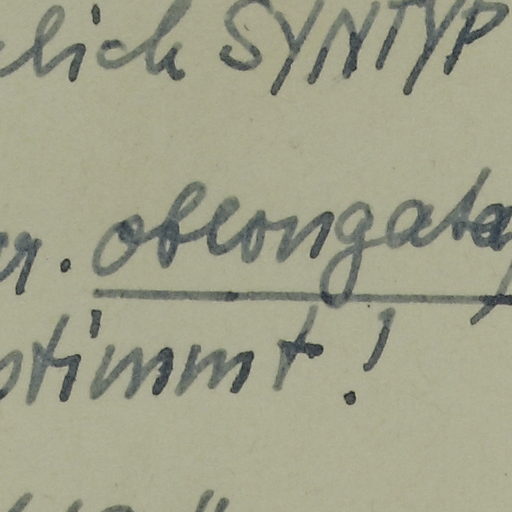 lich SYNTYP
r. oblongata
stimmt!